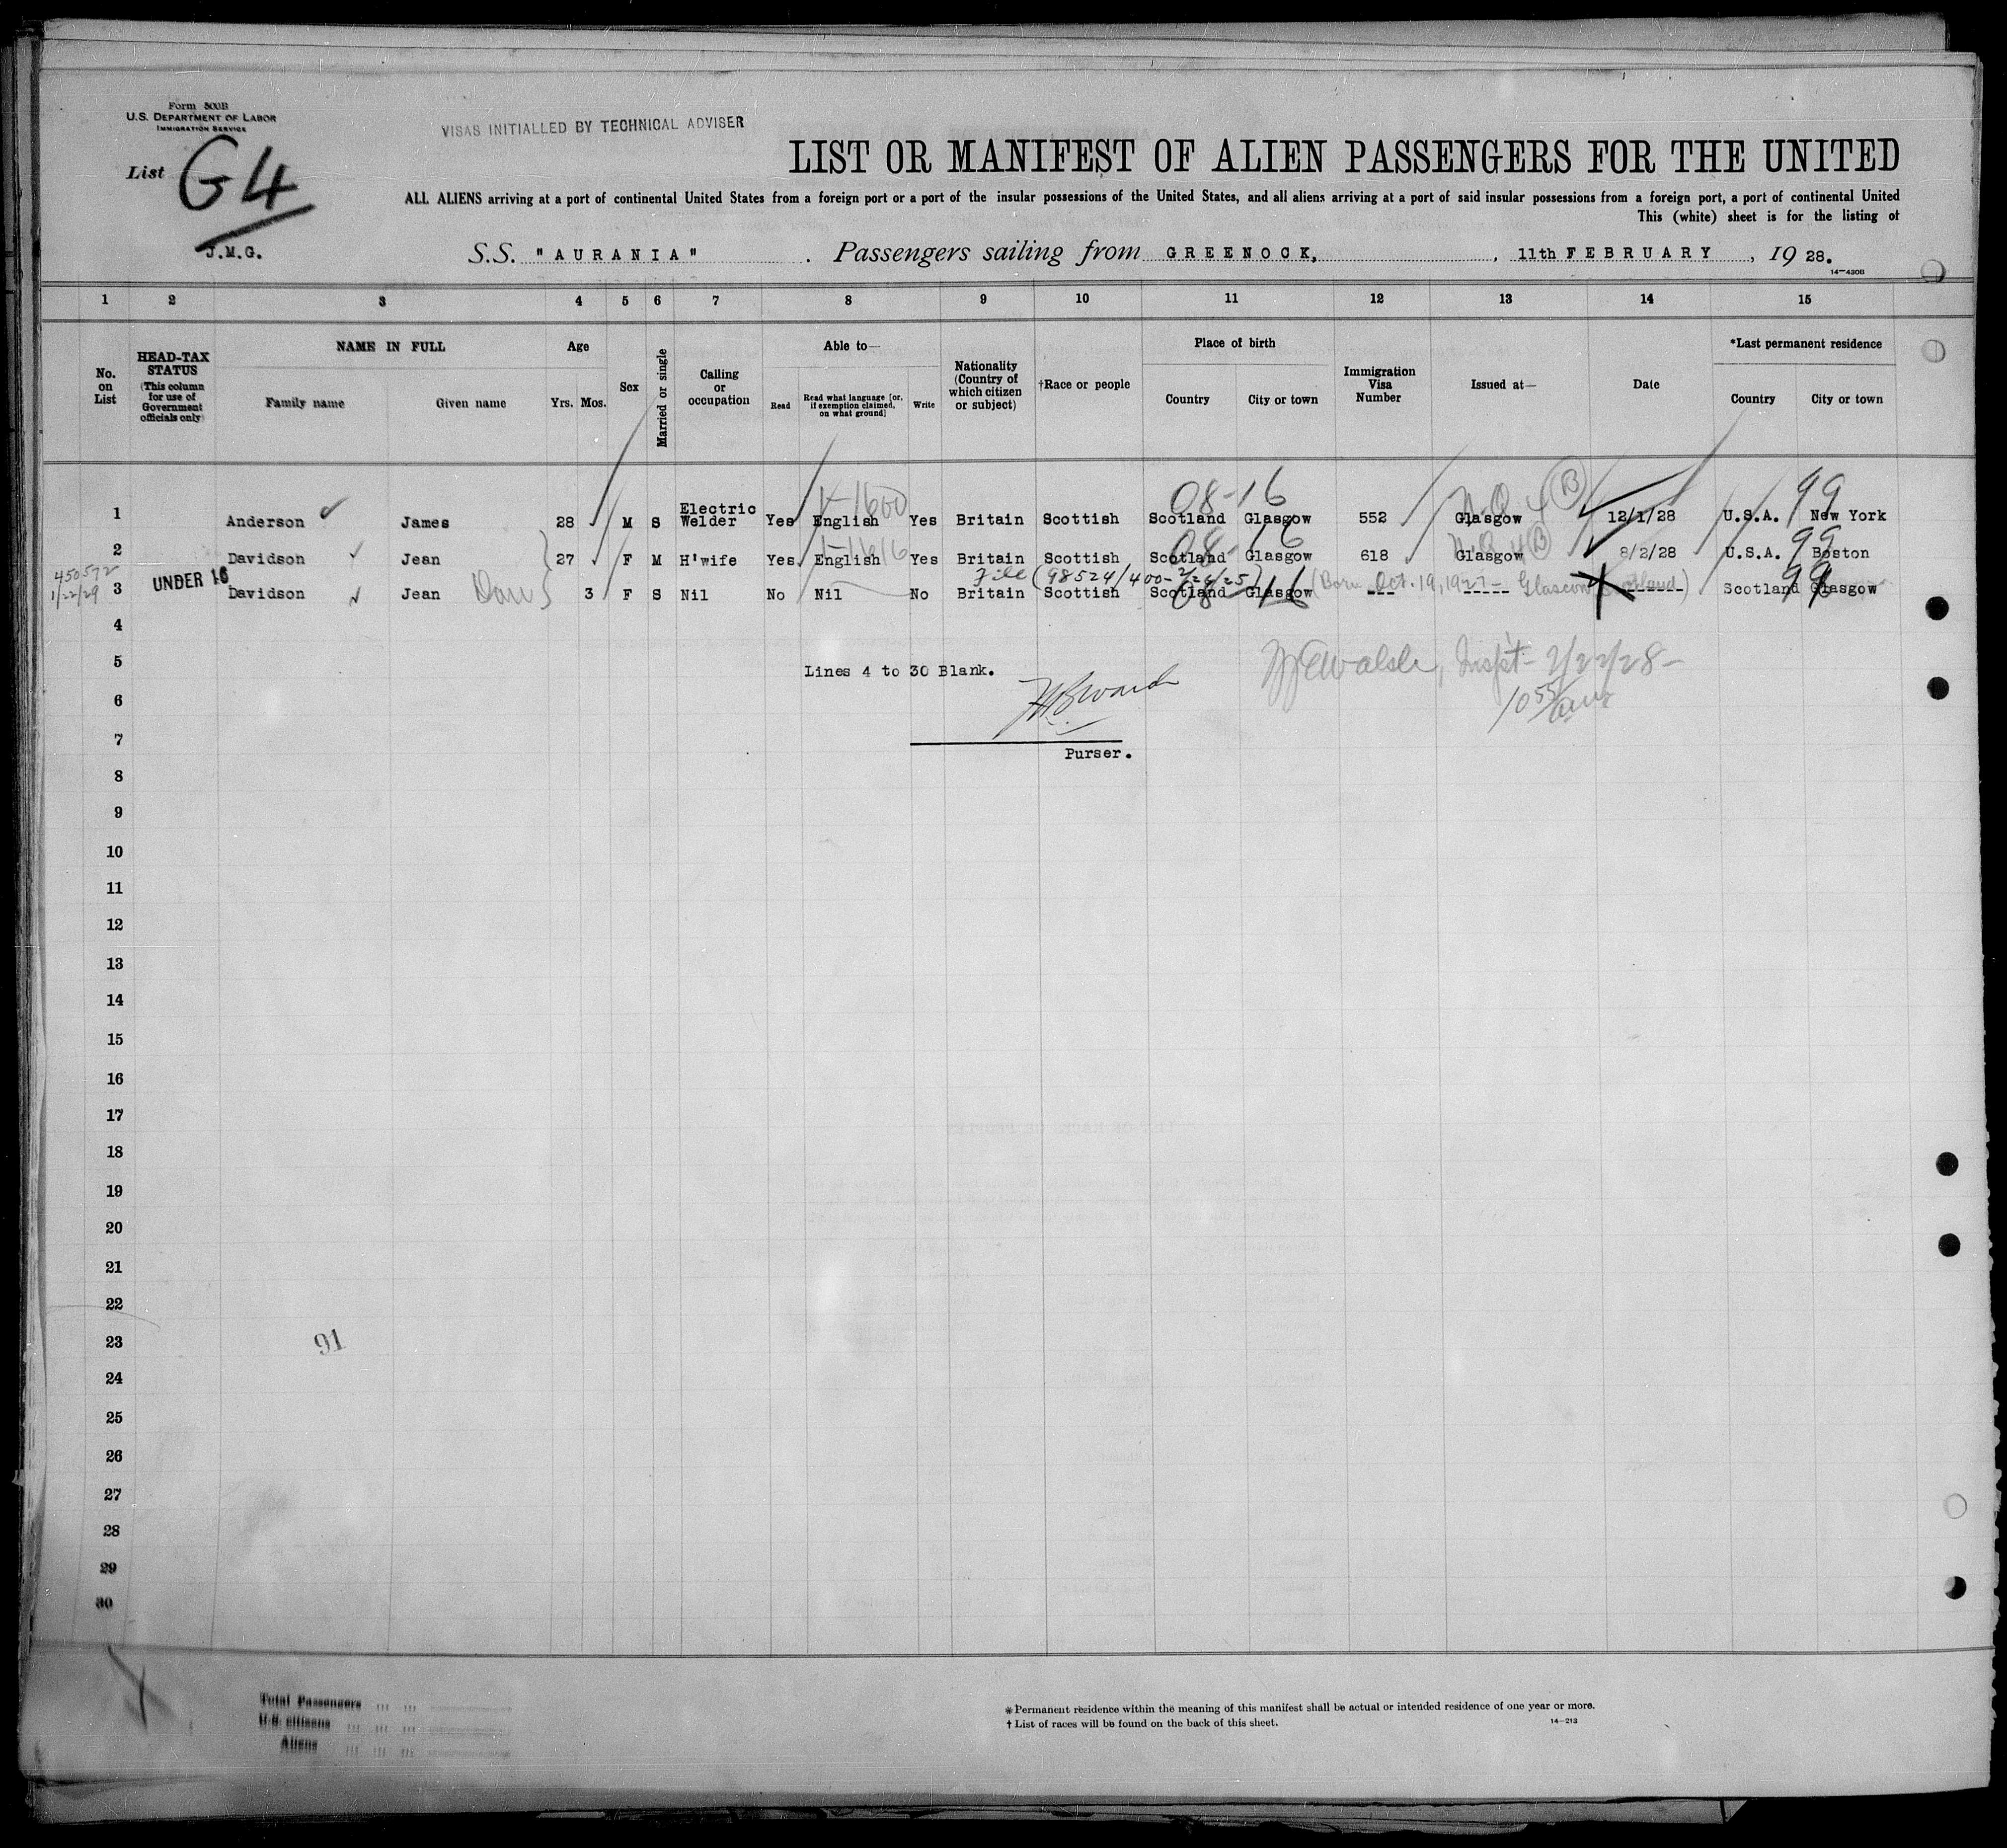 Form 500B
U.S. DEPARTMENT OF LABOR
IMMIGRATION SERVICE
VISAS INITIALLED BY TECHNICAL ADVISER
List G4
J.M.G.
LIST OR MANIFEST OF ALIEN PASSENGERS FOR THE UNITED
ALL ALIENS arriving at a port of continental United States from a foreign port or a port of the insular possessions of the United States, and all aliens arriving at a port of said insular possessions from a foreign port, a port of continental United
This (white) sheet is for the listing of
S.S. "AURANIA" . Passengers sailing from GREENOCK, , 11th FEBRUARY , 19 28.
14-430B
1 2 3 4 5 6 7 8 9 10 11 12 13 14 15
No. on List
HEAD-TAX STATUS (This column for use of Government officials only)
NAME IN FULL
Family name Given name
Age
Yrs. Mos.
Sex
Married or single
Calling or occupation
Able to—
Read Read what language [or, if exemption claimed, on what ground] Write
Nationality (Country of which citizen or subject)
†Race or people
Place of birth
Country City or town
Immigration Visa Number
Issued at—
Date
*Last permanent residence
Country City or town
1-1600 08-16 B 99
1 Anderson James 28 M S Electric Welder Yes English Yes Britain Scottish Scotland Glasgow 552 Glasgow 12/1/28 U.S.A. New York
1-1616 08-16 B 99
2 Davidson Jean 27 F M H'wife Yes English Yes Britain Scottish Scotland Glasgow 618 Glasgow 8/2/28 U.S.A. Boston
450572 File (98524/400-2/24/25)
1/22/29 3 UNDER 16 Davidson Jean 3 F S Nil No Nil No Britain Scottish Scotland Glasgow (Born Oct. 19, 1927 - Glasgow --- ----- ------ Scotland Glasgow
08-16 99
4
5
Lines 4 to 30 Blank.
Walsh, Inspt- 2/22/28-
6
10 55/am
7
Purser.
8
9
10
11
12
13
14
15
16
17
18
19
20
21
22
23
91
24
25
26
27
28
29
30
Total Passengers
U.S. citizens
Aliens
* Permanent residence within the meaning of this manifest shall be actual or intended residence of one year or more.
† List of races will be found on the back of this sheet.
14-213